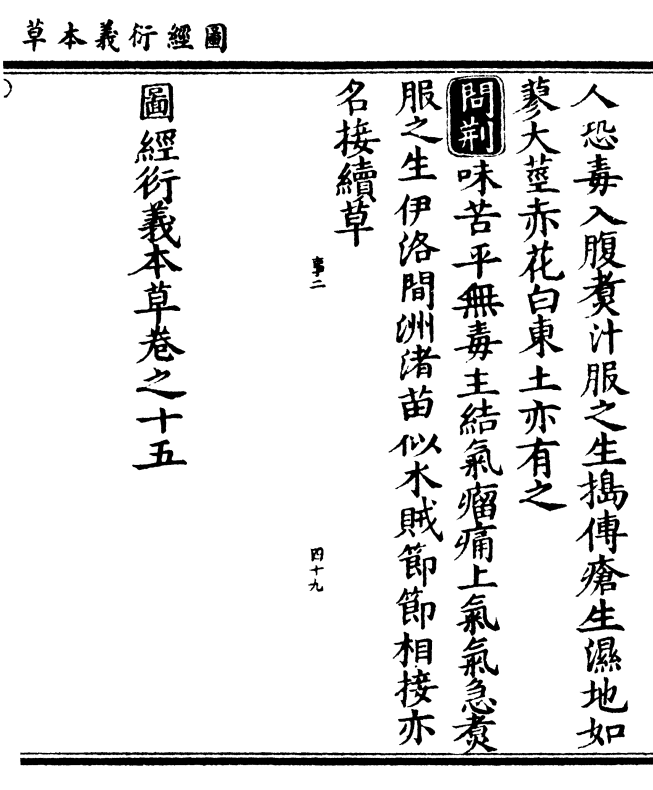 圖經衍義本草
人恐毒入腹煑汁服之生搗傅瘡生濕地如
蓼大莖赤花白東土亦有之
問荆味苦平無毒主結氣瘤痛上氣氣急煑
服之生伊洛間洲渚苗似木賊節節相接亦
名接續草
事二
四十九
圖經衍義本草卷之十五